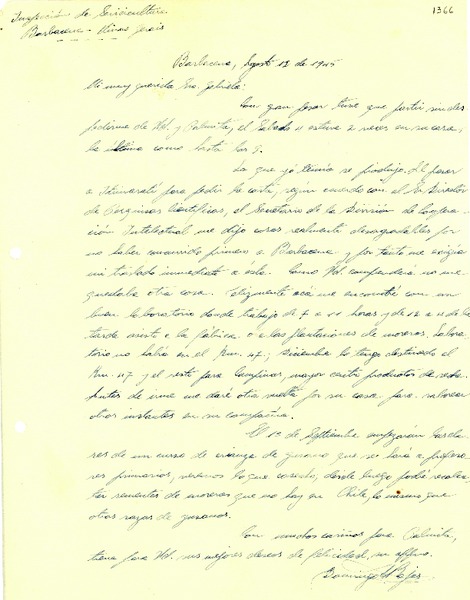 1366
Inspección de Sericicultura
Barbacena - Minas Gerais
Barbacena, Agosto 12 de 1945
Mi muy querida Sra. Gabriela:
Con gran pesar tuve que partir sin des
pedirme de Ud. y Palmita, el Sábado 11 estuve 2 veces en su casa,
la última como hasta las 9.
Lo que yo temía se produjo. Al pasar
a Itamaratí para pedir la carta, según acuerdo con el Director
de Pesquisas Científicas, el Secretario de la División de Coopera
ción Intelectual me dijo cosas realmente desagradables por
no haber concurrido primero a Barbacena y por tanto me exigía
mi traslado inmediato a ésta. Como Ud. comprenderá no me
quedaba otra cosa. Felizmente acá me encontré con un
buen laboratorio donde trabajo de 7 a 10 horas y de 12 a 4 de la
tarde asisto a la fábrica o a las plantaciones de moreras. Labora
torio no había en el Km. 47; Diciembre lo tengo destinado al
Km. 47 y el resto para Campinas, mayor centro productor de seda.
Antes de irme me daré otra vuelta por su casa para saborear
otros instantes en su compañía.
El 1º de Septiembre empezarán las cla
ses de un curso de crianza de gusano que se hará a profeso
res primarios, veremos lo que cosecho, desde luego podré recolec
tar sementes de moreras que no hay en Chile, lo mismo que
otras razas de gusanos.
Con muchos cariños para Palmita,
tiene para Ud. sus mejores deseos de felicidad, su affmo.
Domingo